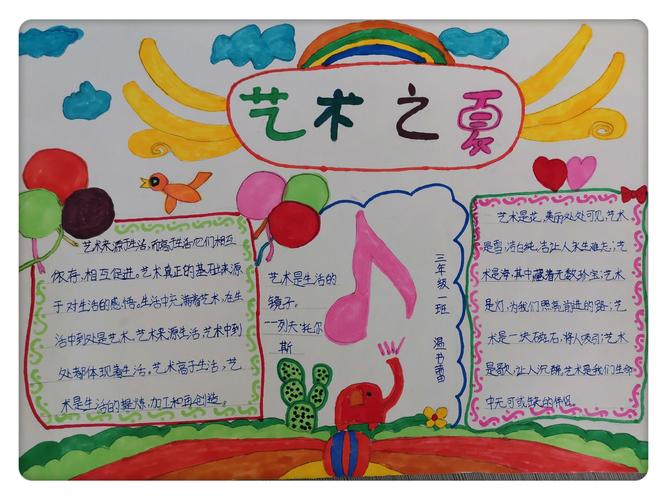 艺术之夏
艺术来源于生活,而高于生活他们相互
依存,相互促进。艺术真正的基础来源
于对生活的感悟。生活中充满着艺术,在生
活中到处是艺术。艺术来源生活,艺术中到
处都体现着生活,艺术高于生活,艺
术是生活的提炼、加工和再创造。
艺术是生活的
镜子。
——列夫·托尔
斯
三年级一班 温书蕾
艺术是花,美丽处处可见;艺术
是雪,洁白纯洁让人永生难忘;艺
术是海,其中藏着无数珍宝;艺术
是灯,为我们照亮前进的路;艺
术是一块磁石,将人吸引;艺术
是歌,让人沉醉,艺术是我们生命
中无可或缺的伴侣。